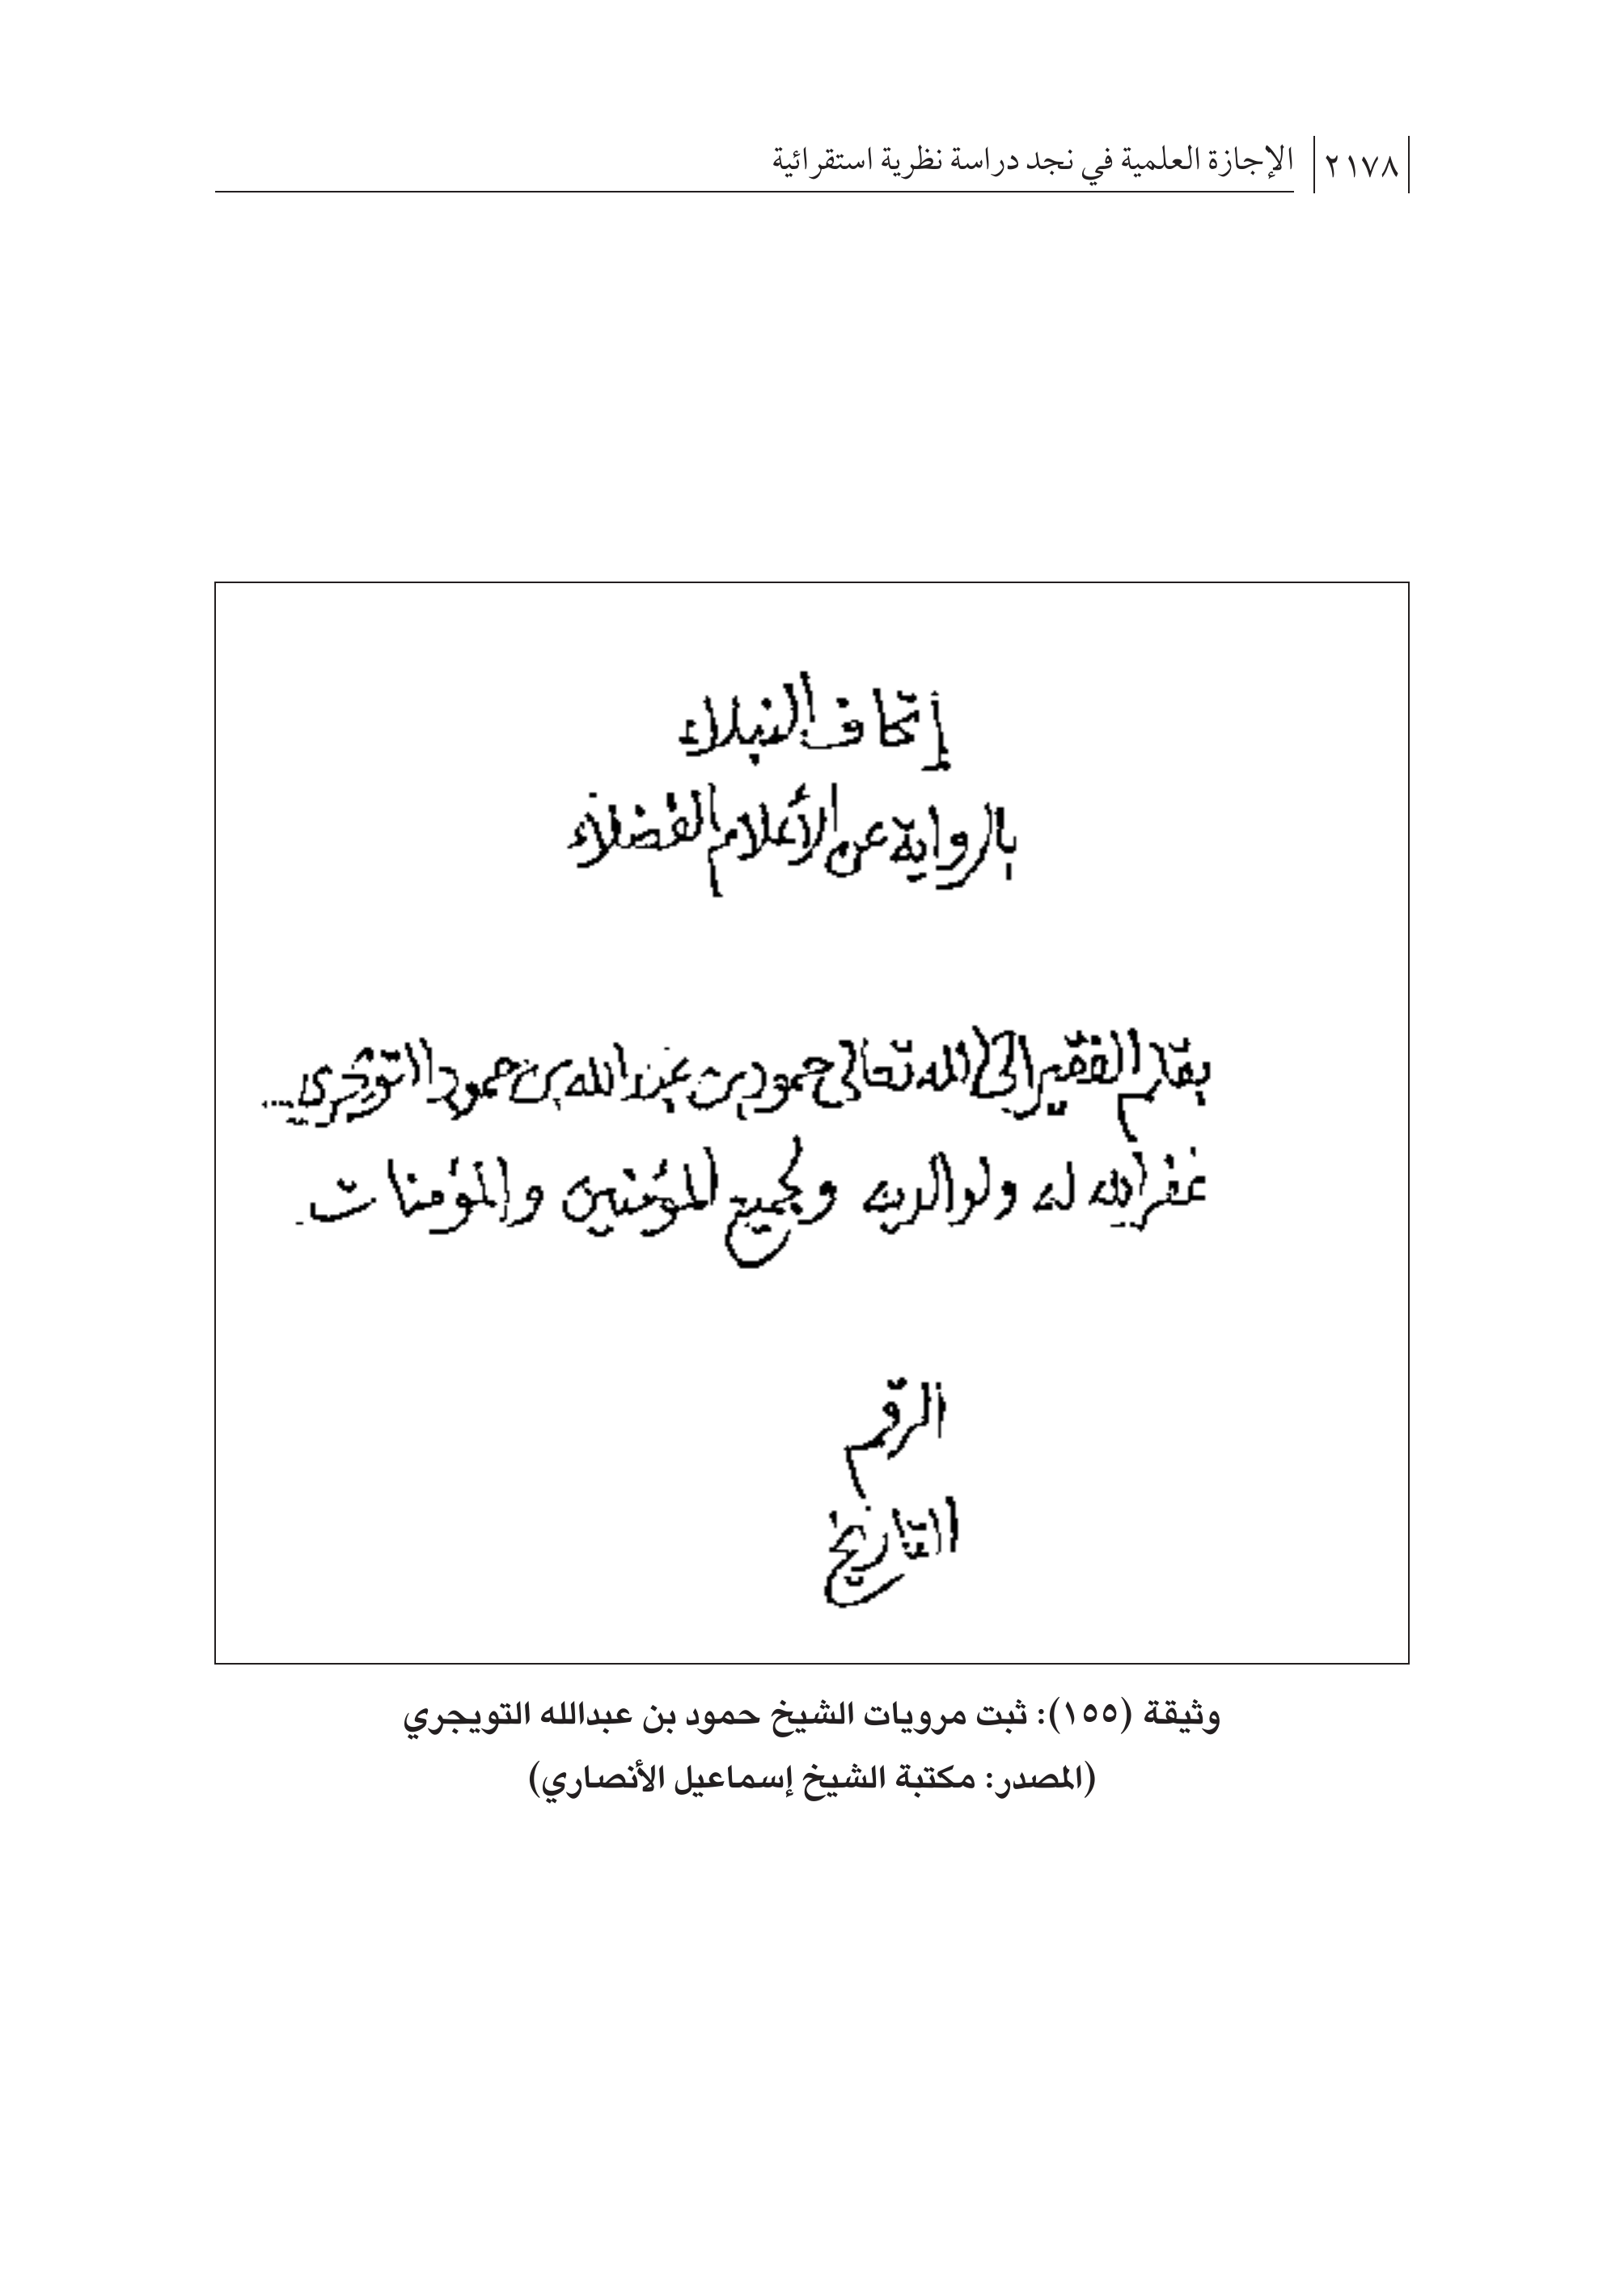 ٢١٧٨ الإجازة العلمية في نجد دراسة نظرية استقرائية
إتحاف النبلاء
بالرواية عن الأعلام الفضلاء
بقلم الفقير إلى الله تعالى حمود بن عبد الله بن حمود التويجري
غفر الله له ولوالديه ولجميع المؤمنين والمؤمنات
الرقم
التاريخ
وثيقة (١٥٥): ثبت مرويات الشيخ حمود بن عبدالله التويجري
(المصدر: مكتبة الشيخ إسماعيل الأنصاري)